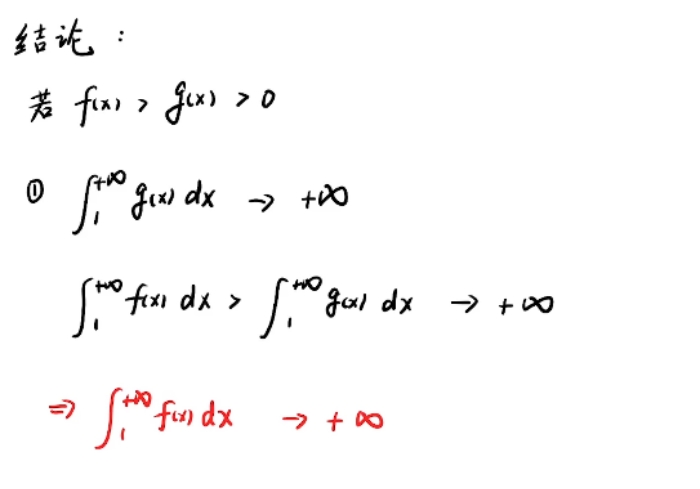 结论：
若 f(x) > g(x) > 0
① ∫₁^{+∞} g(x) dx → +∞
∫₁^{+∞} f(x) dx > ∫₁^{+∞} g(x) dx → +∞
⇒ ∫₁^{+∞} f(x) dx → +∞